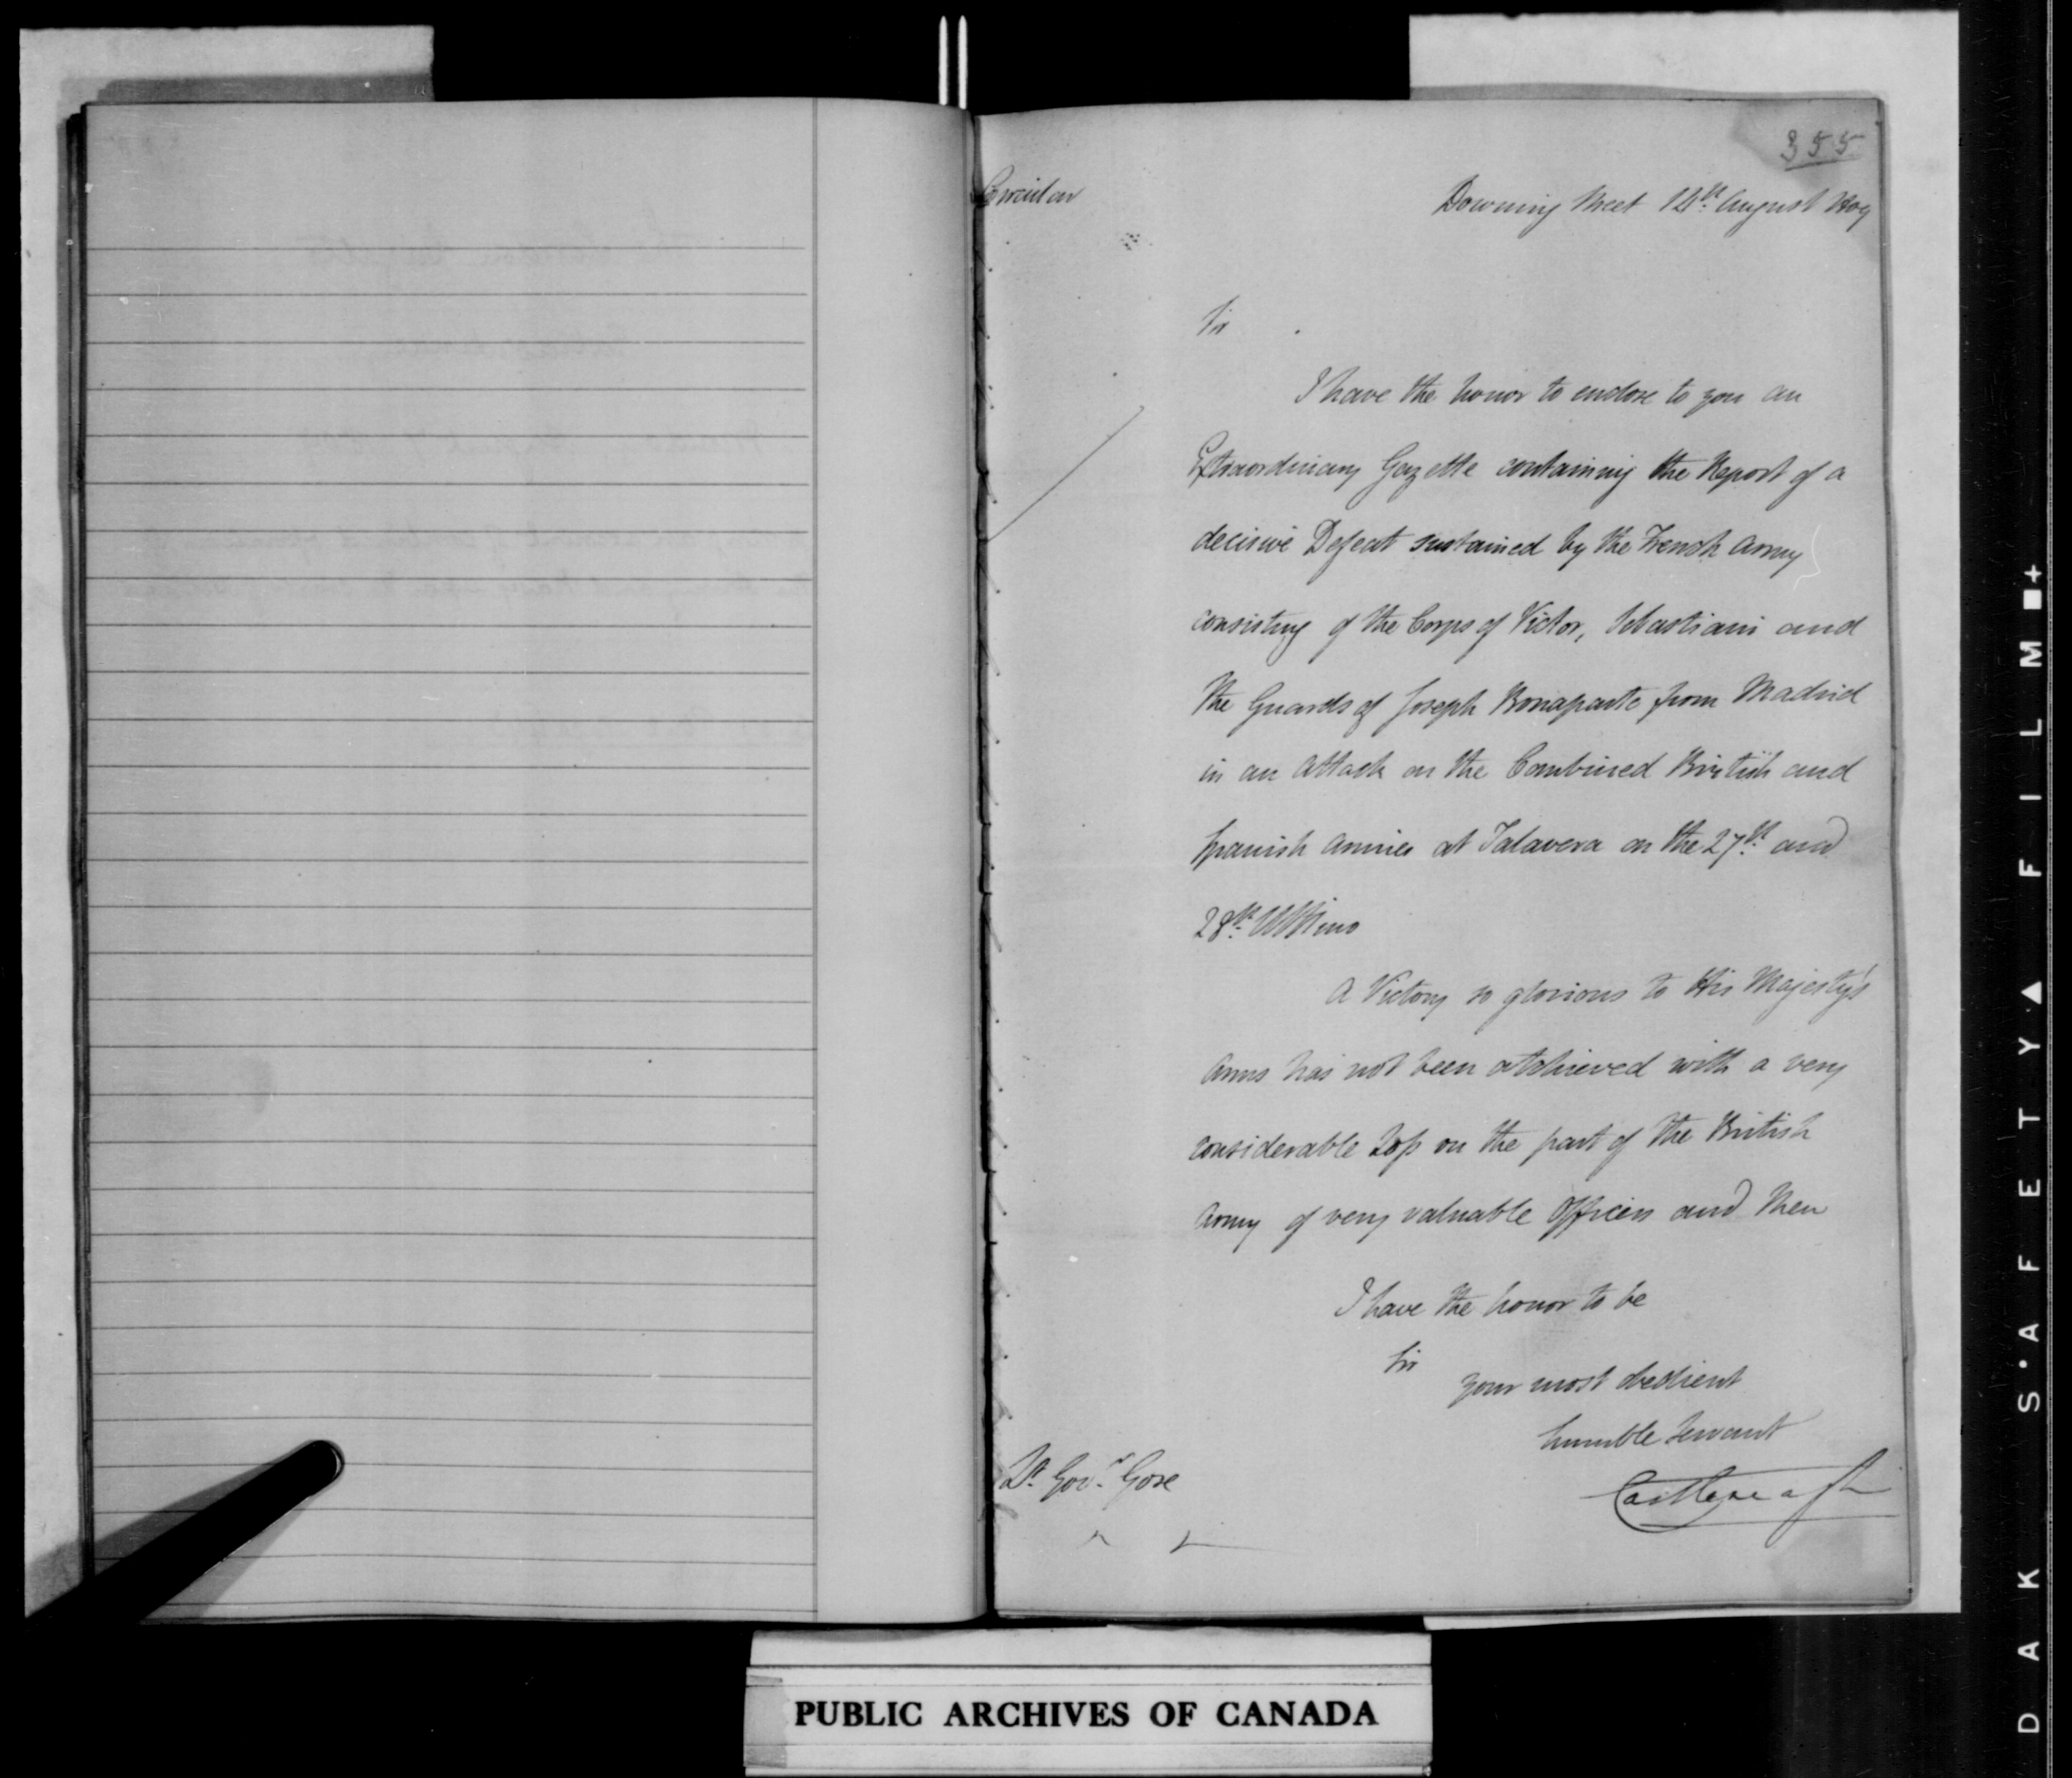 355
Circular
Downing Street 14th. August 1809
Sir
I have the honor to enclose to you an
Extraordinary Gazette containing the Report of a
decisive Defeat sustained by the French Army
consisting of the Corps of Victor, Sebastiani and
the Guards of Joseph Bonaparte from Madrid
in an Attack on the Combined British and
Spanish Armies at Talavera on the 27th. and
28th. Ultimo
A Victory so glorious to His Majesty's
Arms has not been atchieved with a very
considerable Loss on the part of the British
Army of very valuable Officers and Men
I have the honor to be
Sir
your most obedient
humble Servant
Castlereagh
Lt. Govr. Gore
PUBLIC ARCHIVES OF CANADA
DAK S•AFETY▲FILM■+